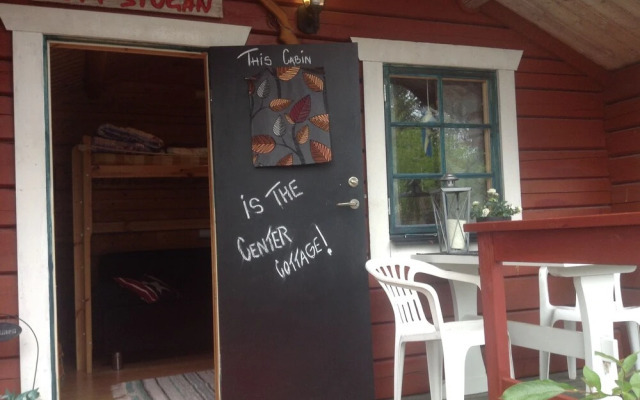 STUGAN
This Cabin
is The
Center
Cottage!